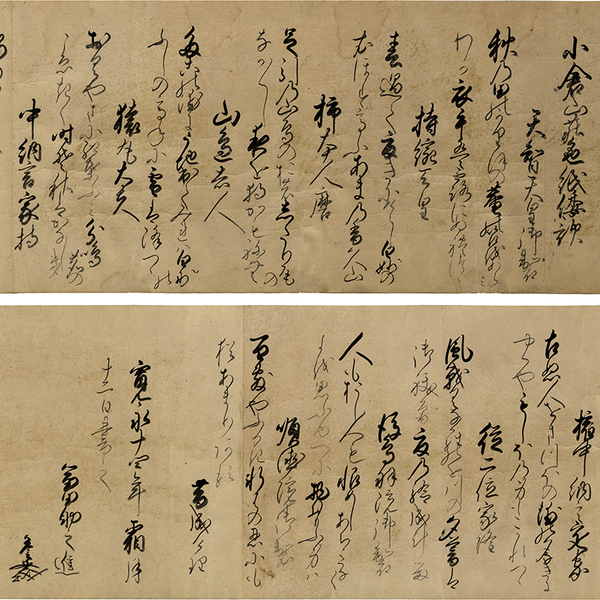 小倉山庄色紙倭歌
天智天皇御製
秋乃田のかりほの菴の苫をあらみ
わか衣手は露にぬれつゝ
持統天皇
春過て夏きにけらし白妙の
衣ほすてふあまの香久山
柿本人麿
足引の山鳥の尾のしたり尾の
なか〳〵し夜を獨かもねむ
山邊赤人
打出てみれは白妙の
ふしの高ねに雪は降つゝ
猿丸大夫
おく山に紅葉ふみ分鳴鹿の
こゑきく時そ秋はかなしき
中納言家持
權中納言定家
こぬ人を
やくやもしほの身もこかれつゝ
從二位家隆
風そよくならの小川の夕暮は
御祓そ夏のしるし成ける
後鳥羽院御製
人もおし人も恨めしあちきなく
よを思ふゆへに物おもふ身は
順徳院御製
百敷やふるき軒はの忍ふにも
猶あまりある
昔成けり
寛永十四年霜月
十一日書之
助之進